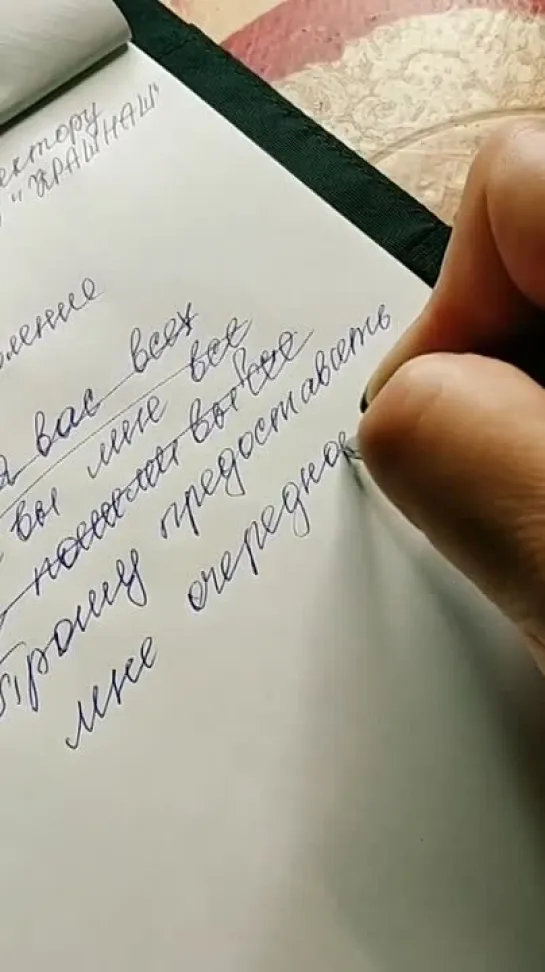 ектору
"КРАШНАШ"
вление
я вас всех
вы мне все
вы все
Прошу предоставить
мне очередно